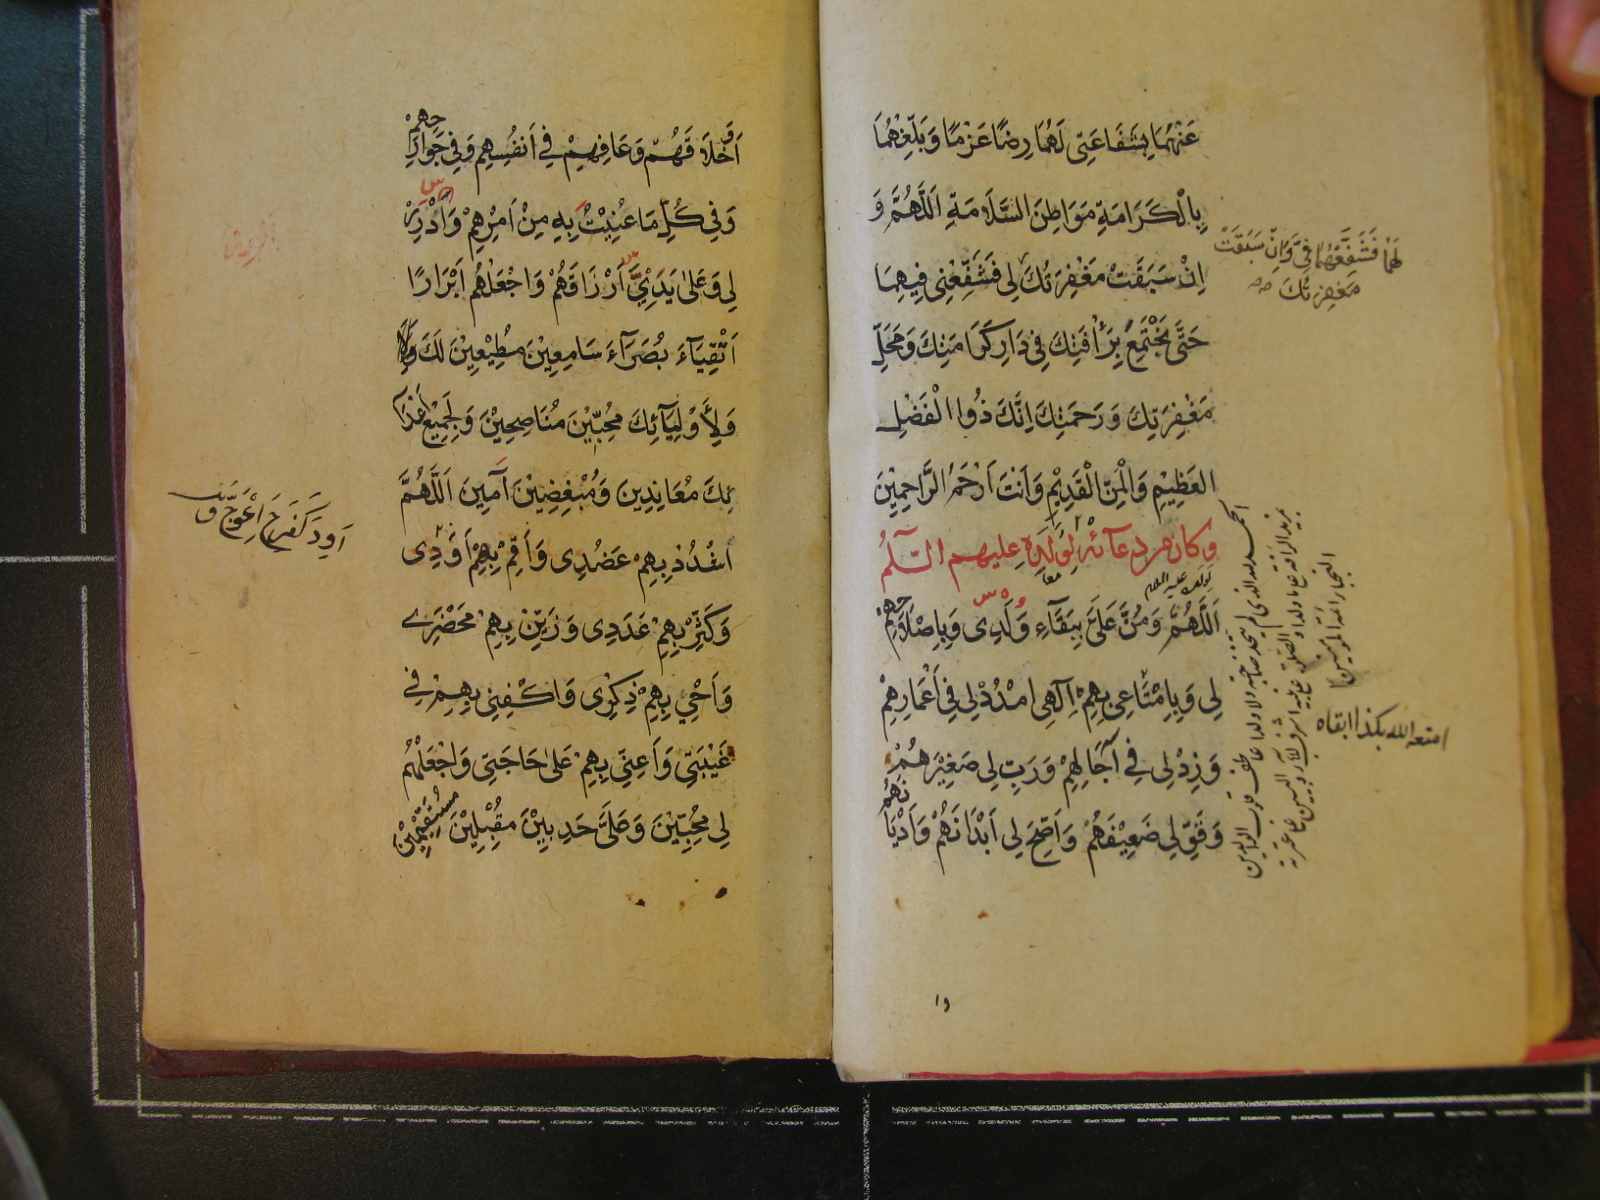 عَنْهُمَا بِشَفَاعَتِى لَهُمَا رِضًا عَزْمًا وَبَلِّغْهُمَا
بِالْكَرَامَةِ مَوَاطِنَ السَّلَامَةِ اَللَّهُمَّ وَ
اِنْ سَبَقَتْ مَغْفِرَتُكَ لِى فَشَفِّعْنِى فِيهِمَا
حَتّٰى نَجْتَمِعَ بِرَأْفَتِكَ فِى دَارِ كَرَامَتِكَ وَمَحَلِّ
مَغْفِرَتِكَ وَرَحْمَتِكَ اِنَّكَ ذُوا الْفَضْلِ
العَظِيْمِ وَالْمَنِّ الْقَدِيْمِ وَاَنْتَ اَرْحَمُ الرَّاحِمِيْنَ
وكان من دعائه لِوَلَدِهِ عليهم السّلم
اَللَّهُمَّ وَمُنَّ عَلَىَّ بِبَقَآءِ وَلَدِى وَبِاِصْلَاحِهِمْ
لِى وَبِاِمْتَاعِى بِهِمْ اِلٰهِى امْدُدْ لِى فِى اَعْمَارِهِمْ
وَزِدْ لِى فِى آجَالِهِمْ وَرَبِّ لِى صَغِيْرَهُمْ
وَقَوِّ لِى ضَعِيْفَهُمْ وَاَصِحَّ لِى اَبْدَانَهُمْ وَاَدْيَانَهُمْ
لَهُمَا فَشَفِّعْهُمَا فِىَّ وَاِنْ سَبَقَتْ
مَغْفِرَتُكَ
امتعه الله بكذا ابقاه
وَاَخْلَاقَهُمْ وَعَافِهِمْ فِى اَنْفُسِهِمْ وَفِى جَوَارِحِهِمْ
وَفِى كُلِّ مَا عُنِيْتُ بِهِ مِنْ اَمْرِهِمْ وَاَدْرِرْ
لِى وَعَلٰى يَدَىَّ اَرْزَاقَهُمْ وَاجْعَلْهُمْ اَبْرَارًا
اَتْقِيَآءَ بُصَرَآءَ سَامِعِيْنَ مُطِيْعِيْنَ لَكَ
وَلِاَوْلِيَآئِكَ مُحِبِّيْنَ مُنَاصِحِيْنَ وَلِجَمِيْعِ اَعْدَآ
ئِكَ مُعَانِدِيْنَ وَمُبْغِضِيْنَ آمِينَ اَللَّهُمَّ
اشْدُدْ بِهِمْ عَضُدِى وَاَقِمْ بِهِمْ اَوَدِى
وَكَثِّرْ بِهِمْ عَدَدِى وَزَيِّنْ بِهِمْ مَحْضَرِى
وَاَحْىِ بِهِمْ ذِكْرِى وَاكْفِنِى بِهِمْ فِى
غَيْبَتِى وَاَعِنِّى بِهِمْ عَلٰى حَاجَتِى وَاجْعَلْهُمْ
لِى مُحِبِّيْنَ وَعَلَىَّ حَدِبِيْنَ مُقْبِلِيْنَ مُسْتَقِيْمِيْنَ
اَوِدَ كَفَرِحَ اِعْوَجَّ ق